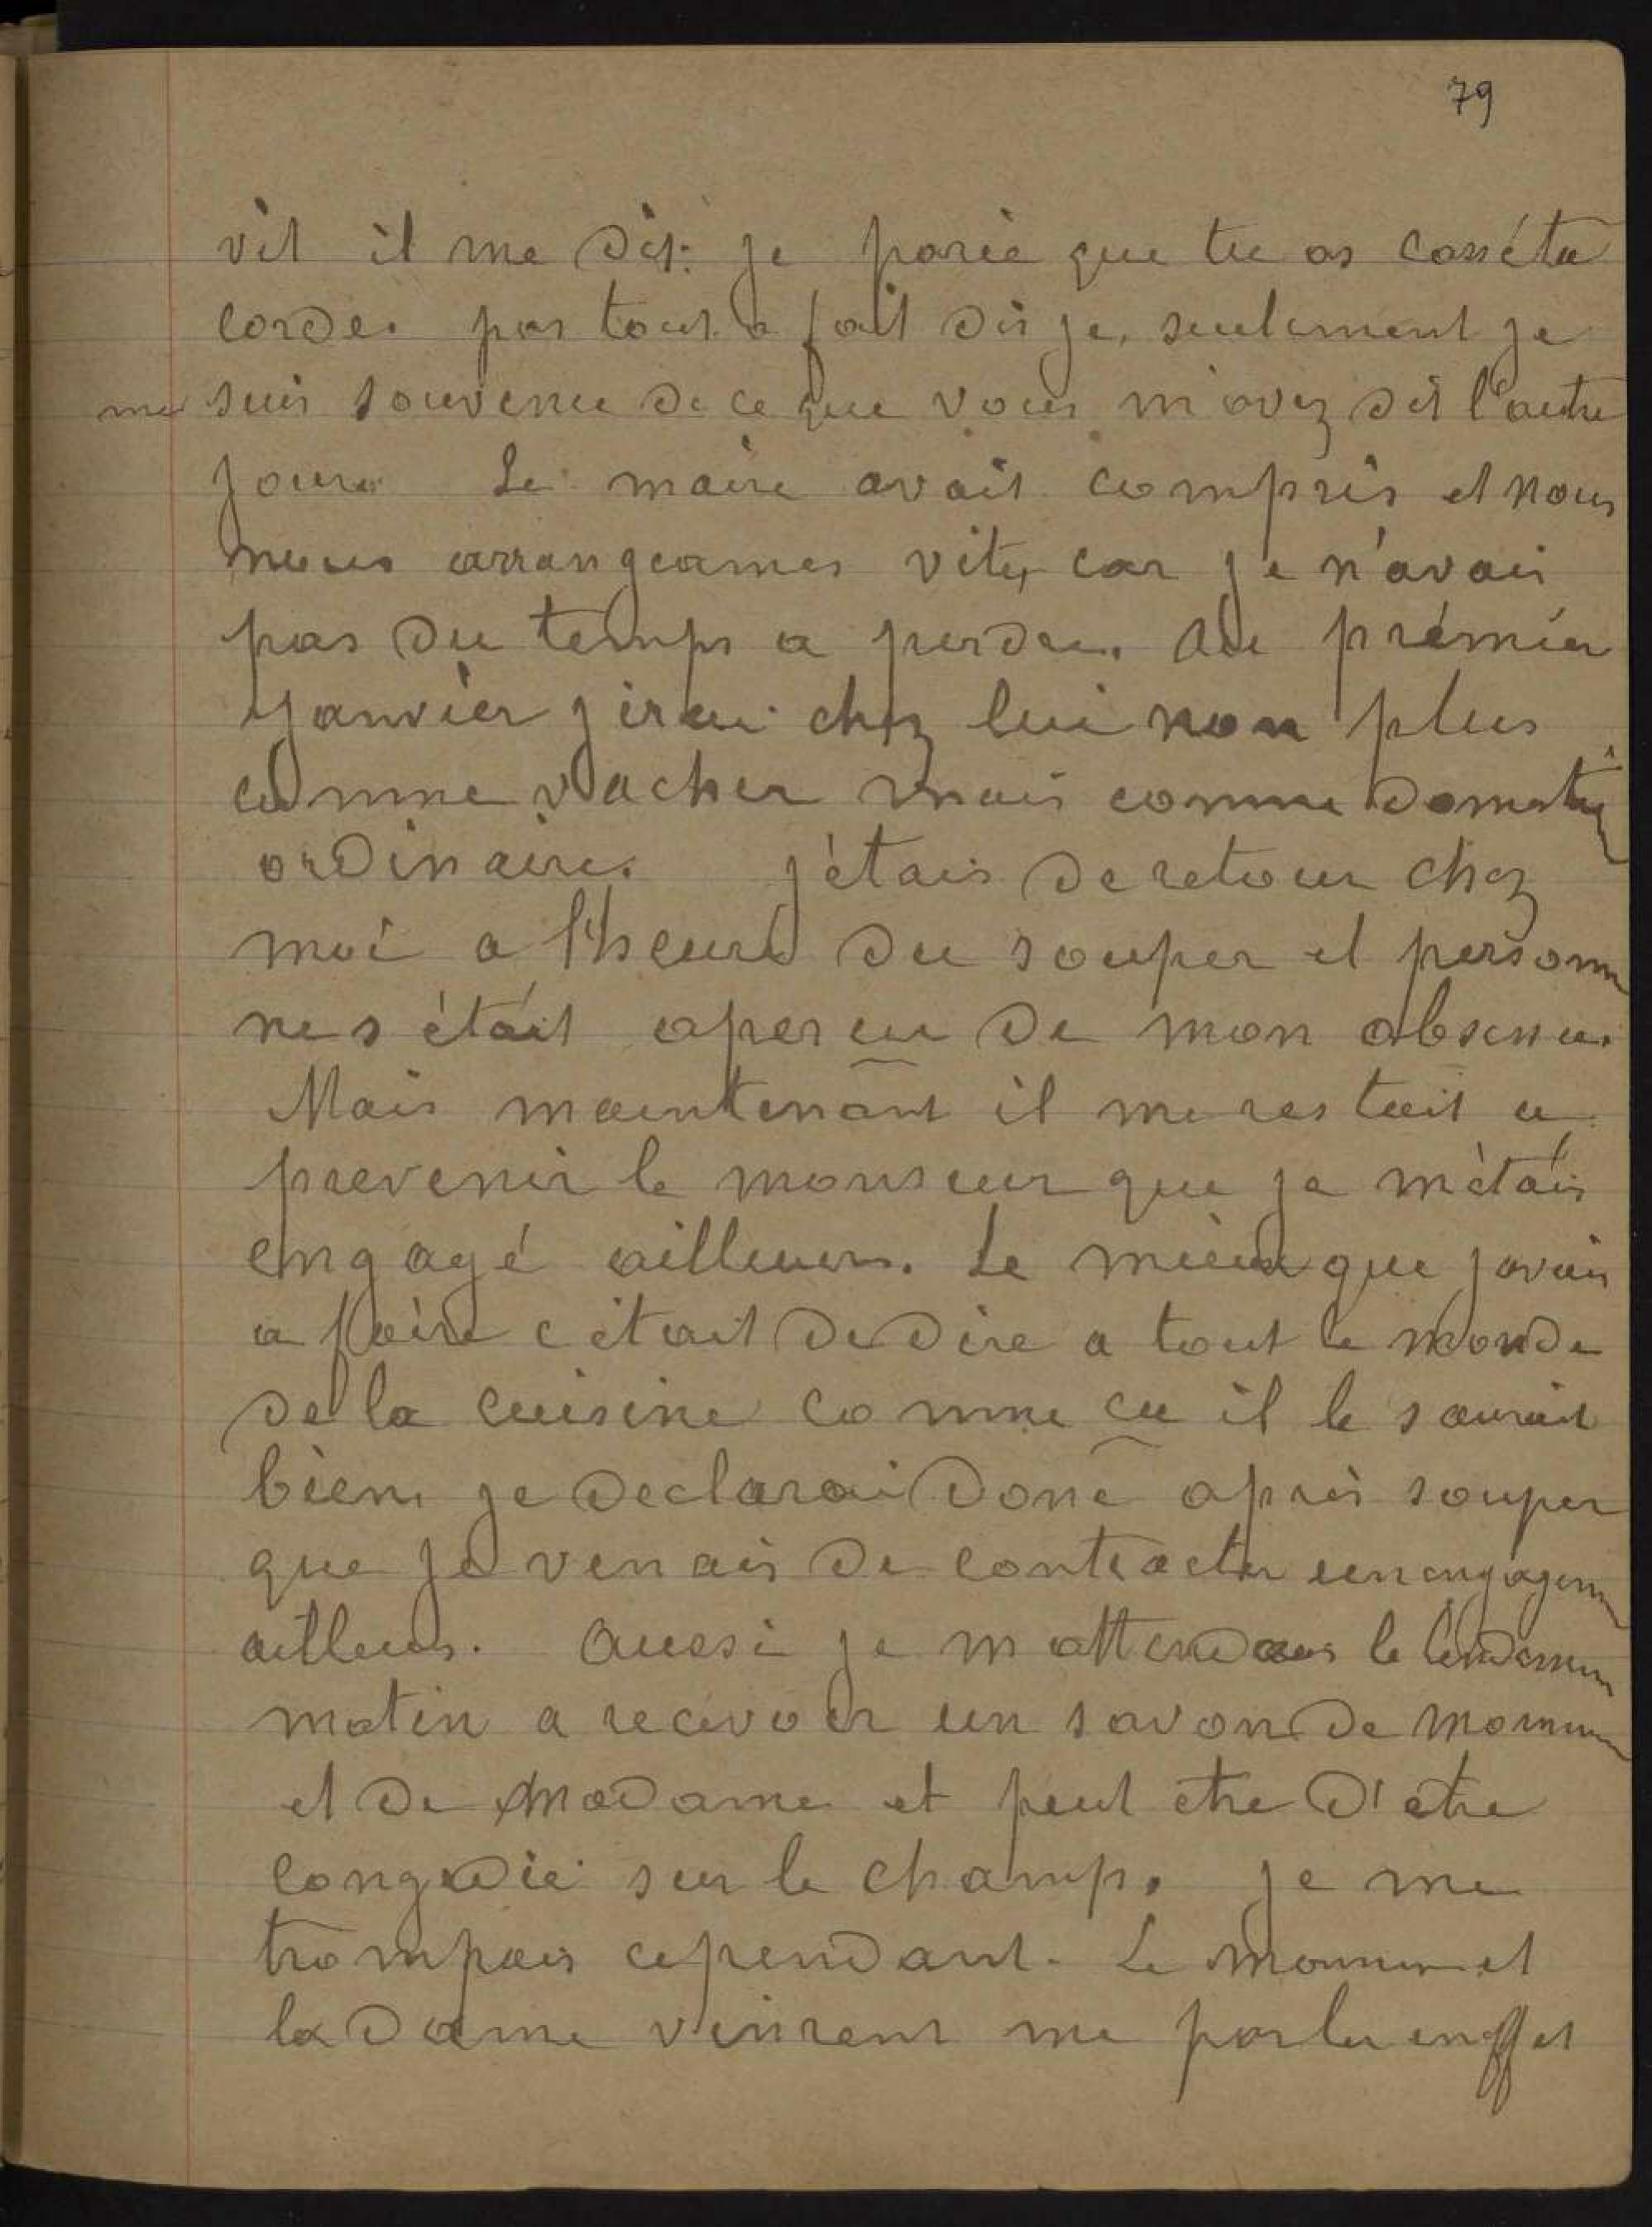 79
vit il me dit: je parie que tu as cassé ta
corde. pas tout a fait dis je, seulement je
me suis souvenu de ce que vous m'avez dit l'autre
jour. Le maire avait compris et nous
nous arrangeames vite, car je n'avais
pas du temps a perdre. Au prémier
janvier j irai chez lui non plus
comme vacher mais comme domestiq
ordinaire. j'étais de retour chez
moi a l'heure du souper et personn
ne s était aperçu de mon absence.
Mais maintenant il me restait a
prevenir le monsieur que je m'étais
engagé ailleurs. Le mieux que j avais
a faire c était de dire a tout le monde
de la cuisine comme ça il le saurait
bien. je declarai donc après souper
que je venais de contracter un engagem
ailleurs. Aussi je m attendais le lendemain
matin a recevoir un savon de monsieur
et de madame et peut etre d'etre
congedié sur le champ. je me
trompais cependant. Le monsieur et
la dame vinrent me parler en effet